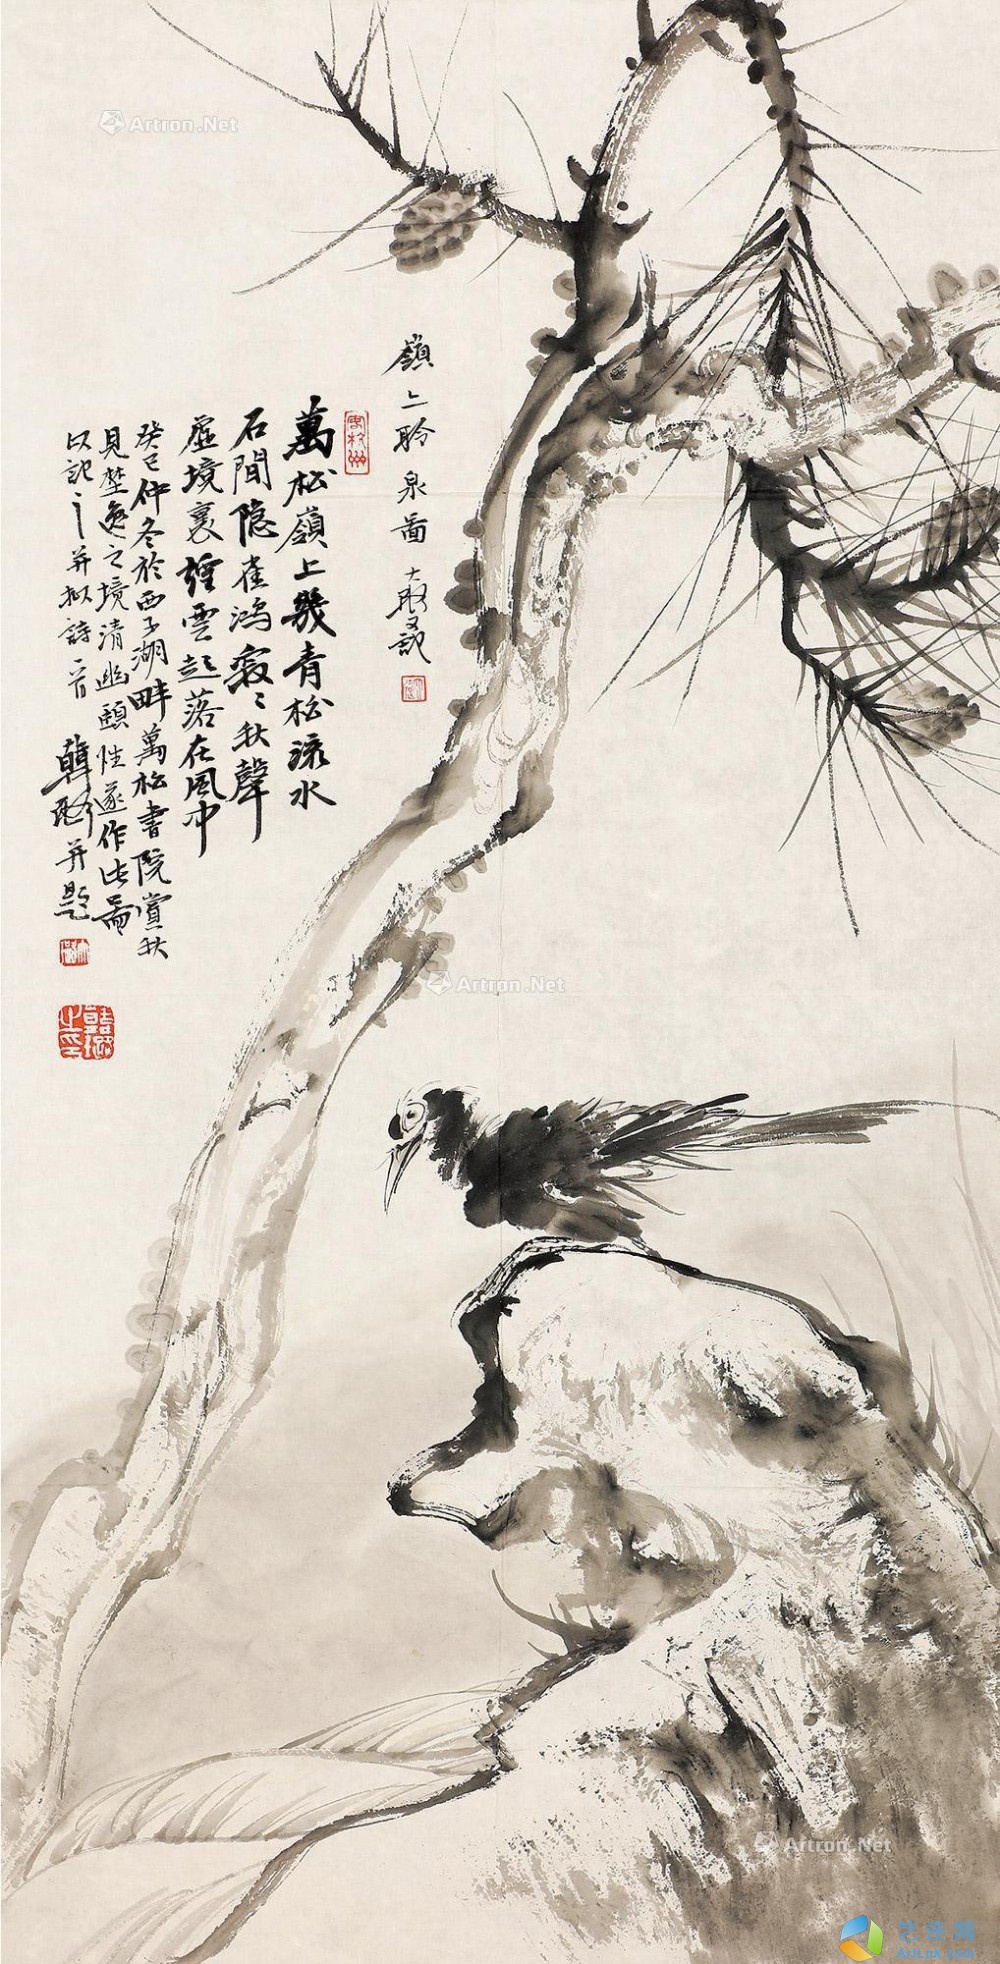 嶺上聆泉圖
萬松嶺上幾青松流水
石間隐雀鸿寂〻秋聲
虛境裏煙雲起落在風中
癸巳仲冬於西子湖畔萬松書院賞秋
見埜逸之境清幽頤性遂作此圖
以記之并拟詩一首 韓璐并題
Artron.Net
Artron.Net
Artron.Net